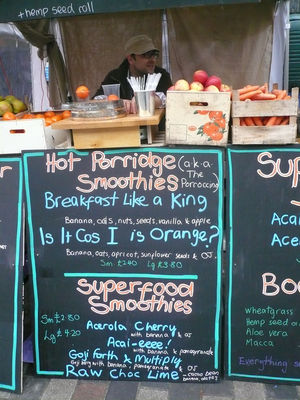 + hemp seed roll
Hot Porridge (a.k.a.
Smoothies The Porrocino)
Breakfast Like a King
Banana, oats, nuts, seeds, vanilla & apple
Is It Cos I is Orange?
Banana, oats, apricot, sunflower seeds & OJ.
Sm £2.40 Lg £3.80
Superfood
Smoothies
Sm £2.80
Lg £4.20
Acerola Cherry
with banana & OJ
Acai-eeee!
with banana & pomegranate
Goji forth & Multiply
Goji berry with banana, pomegranate & OJ
Raw Choc Lime
- cocoa bean,
banana,
Sup
Acai
Ace
Boo
wheatgrass
Hemp seed o
Aloe vera
Macca
Everything s